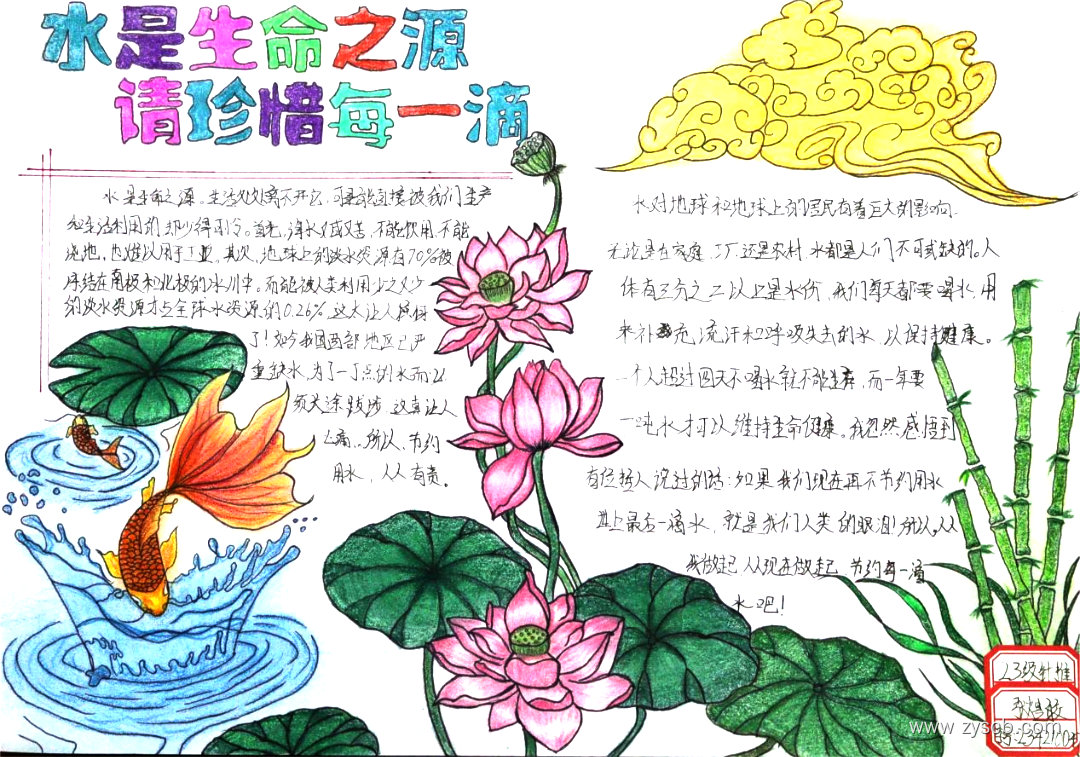 水是生命之源
请珍惜每一滴
水是生命之源。生活处处离不开它,可是能直接被我们生产
和生活利用的却少得可令。首先,海水又咸又苦,不能饮用,不能
浇地,也难以用于工业。其次,地球上的淡水资源有70%被
冻结在南极和北极的冰川中。而能被人类利用少之又少
的淡水资源才占全球水资源的0.26%,这太让人惊讶
了!如今我国西部地区已严
重缺水,为了一丁点的水而必
须长途跋涉,这真让人
心痛。所以,节约
用水,人人有责。
水对地球和地球上的居民有着巨大的影响。
无论是在家庭、工厂还是农村,水都是人们不可或缺的。人
体有三分之二以上是水份,我们每天都要喝水,用
来补充流汗和呼吸失去的水,以保持健康。
一个人超过四天不喝水就不能生存,而一年要
一吨水才可以维持生命健康。我忽然感悟到
有位哲人说过的话:如果我们现在再不节约用水
世上最后一滴水,就是我们人类的眼泪!所以,从
我做起,从现在做起,节约每一滴
水吧!
23级针推
www.zysgb.com